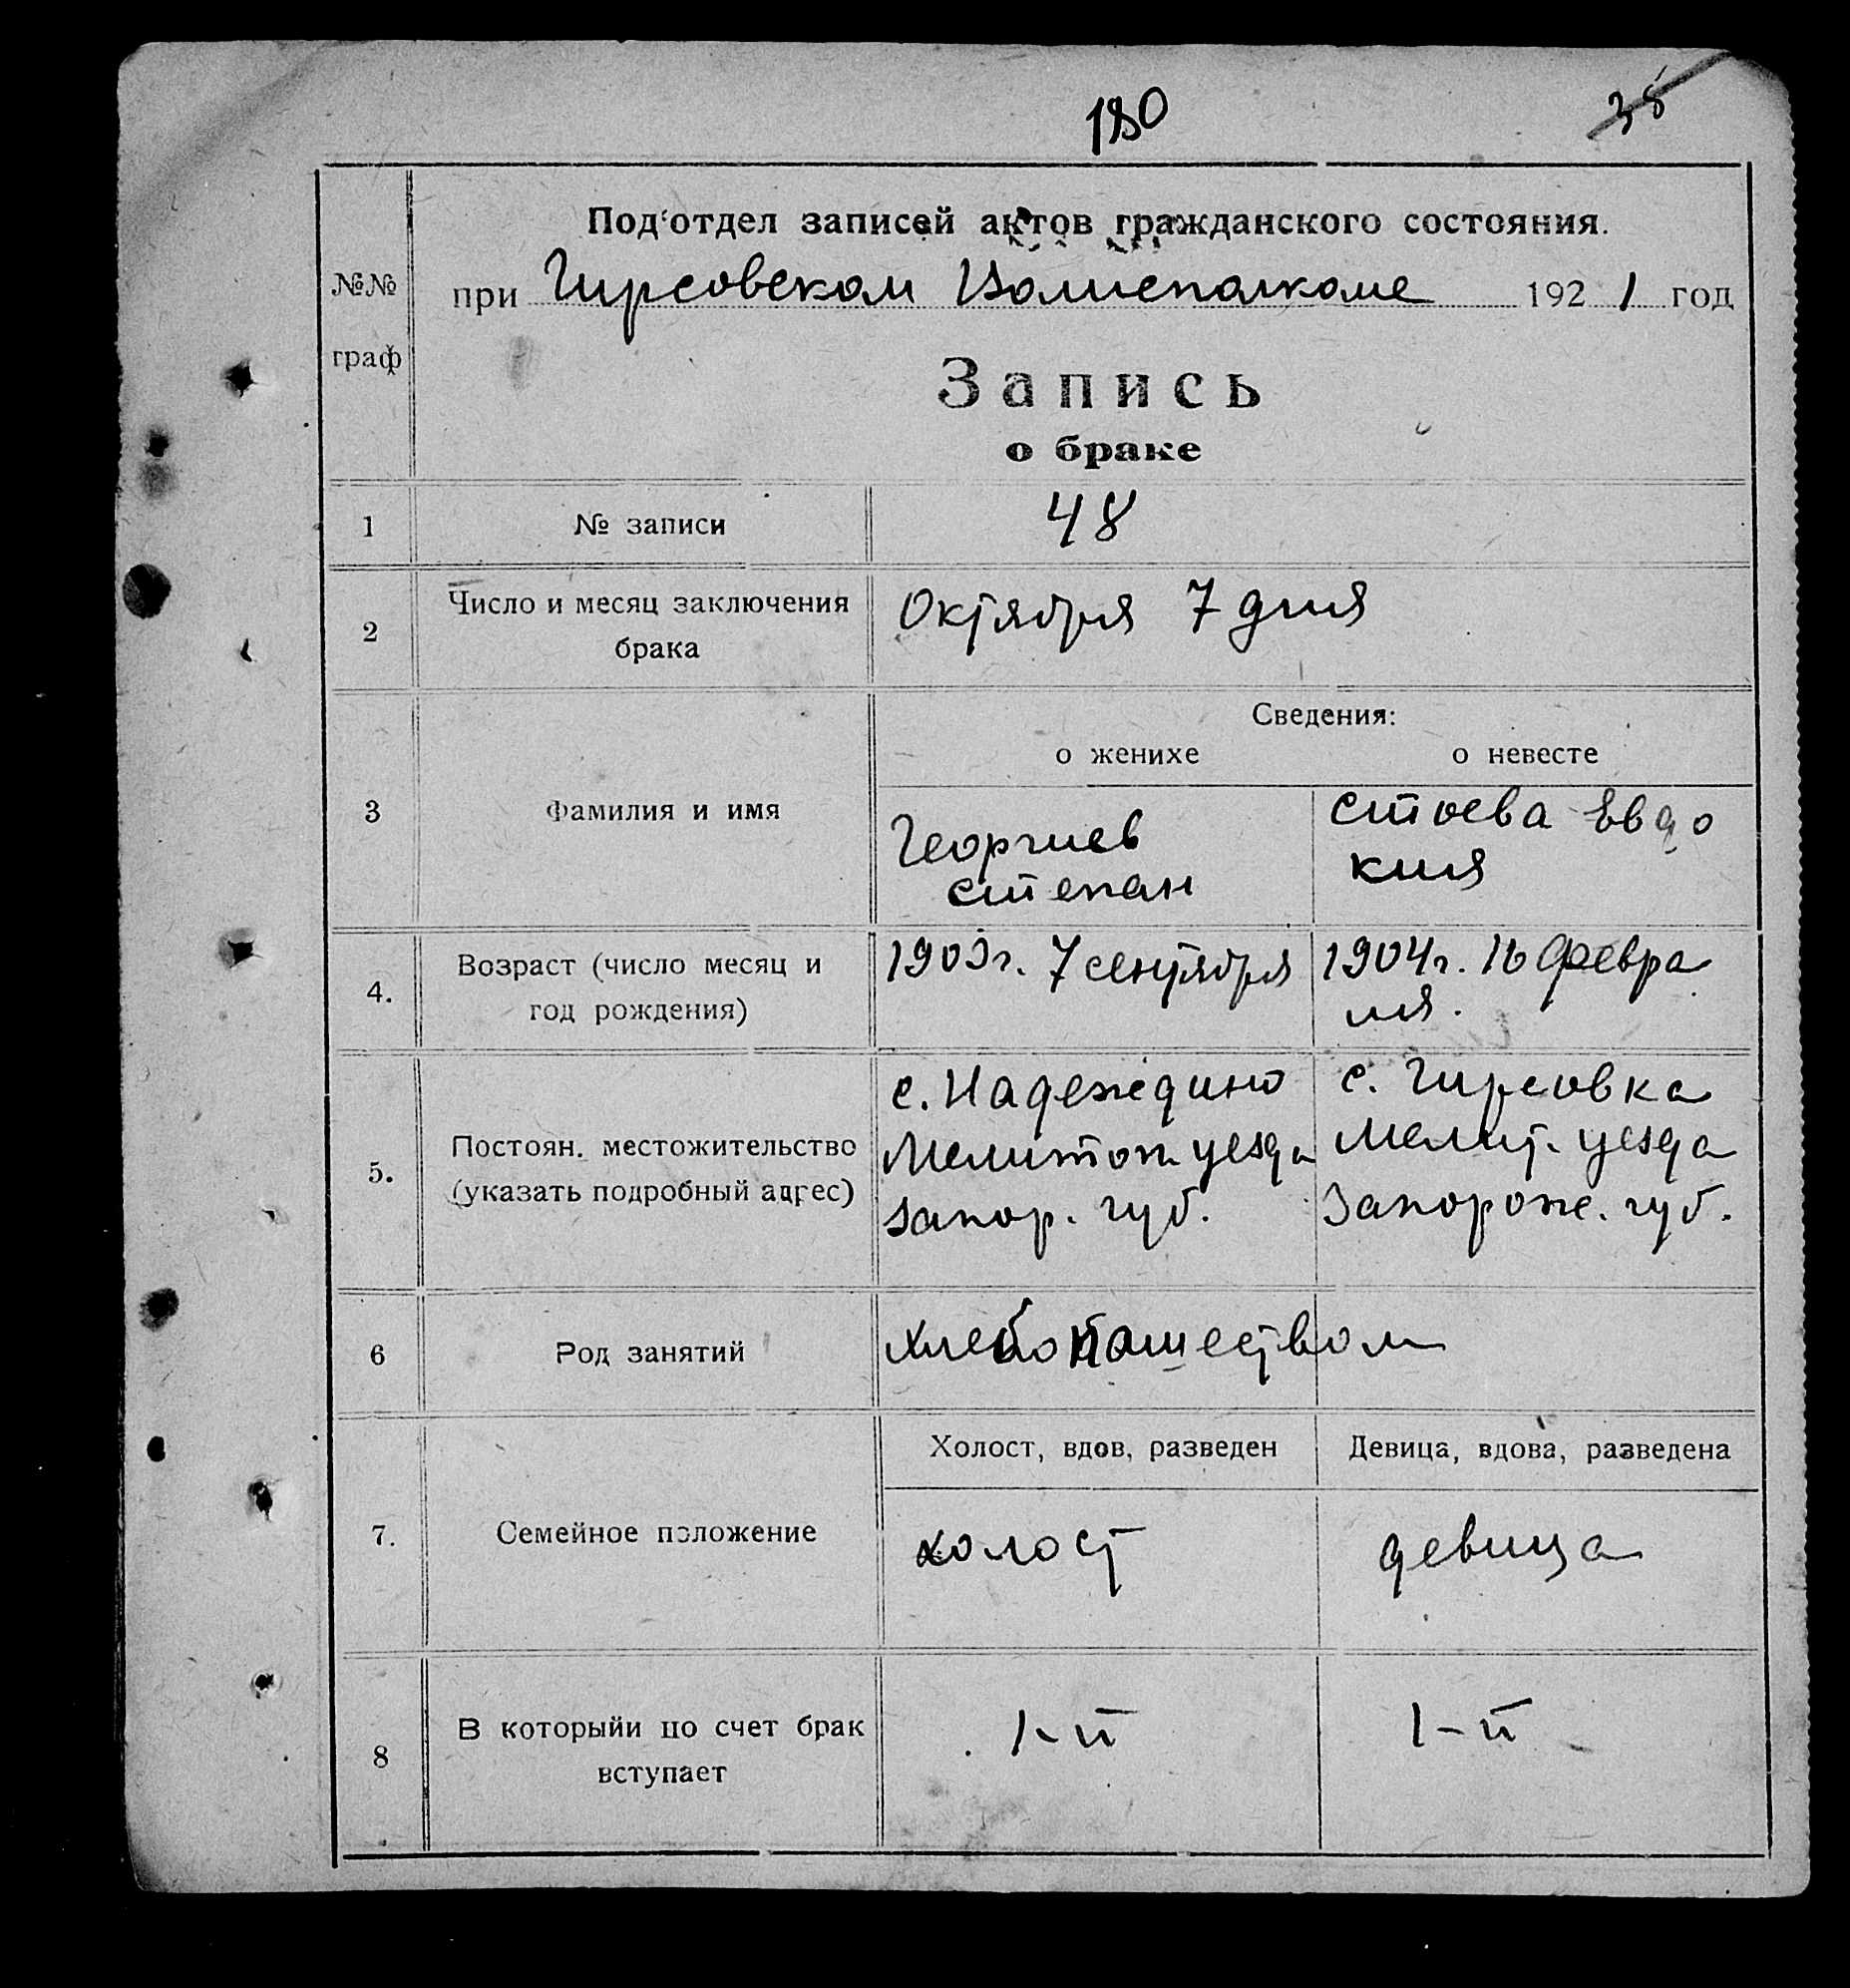 180
38
Подотдел записей актов гражданского состояния.
№№
граф
при Гирсовском Волисполкоме 1921 год
Запись
о браке
1 № записи 48
2 Число и месяц заключения
брака
Октября 7 дня
Сведения:
о женихе о невесте
3 Фамилия и имя
Георгиев
Степан
Стоева Евдо
кия
4. Возраст (число месяц и
год рождения)
1903г. 7 сентября
1904г. 16 Февра
ля.
5. Постоян. местожительство
(указать подробный адрес)
с. Надеждино
Мелитоп. уезда
Запор. губ.
с. Гирсовка
Мелит. уезда
Запорож. губ.
6 Род занятий
Хлебопашеством
7. Семейное положение
Холост, вдов, разведен
Девица, вдова, разведена
холост
девица
8 В которыйи по счет брак
вступает
1-й
1-й